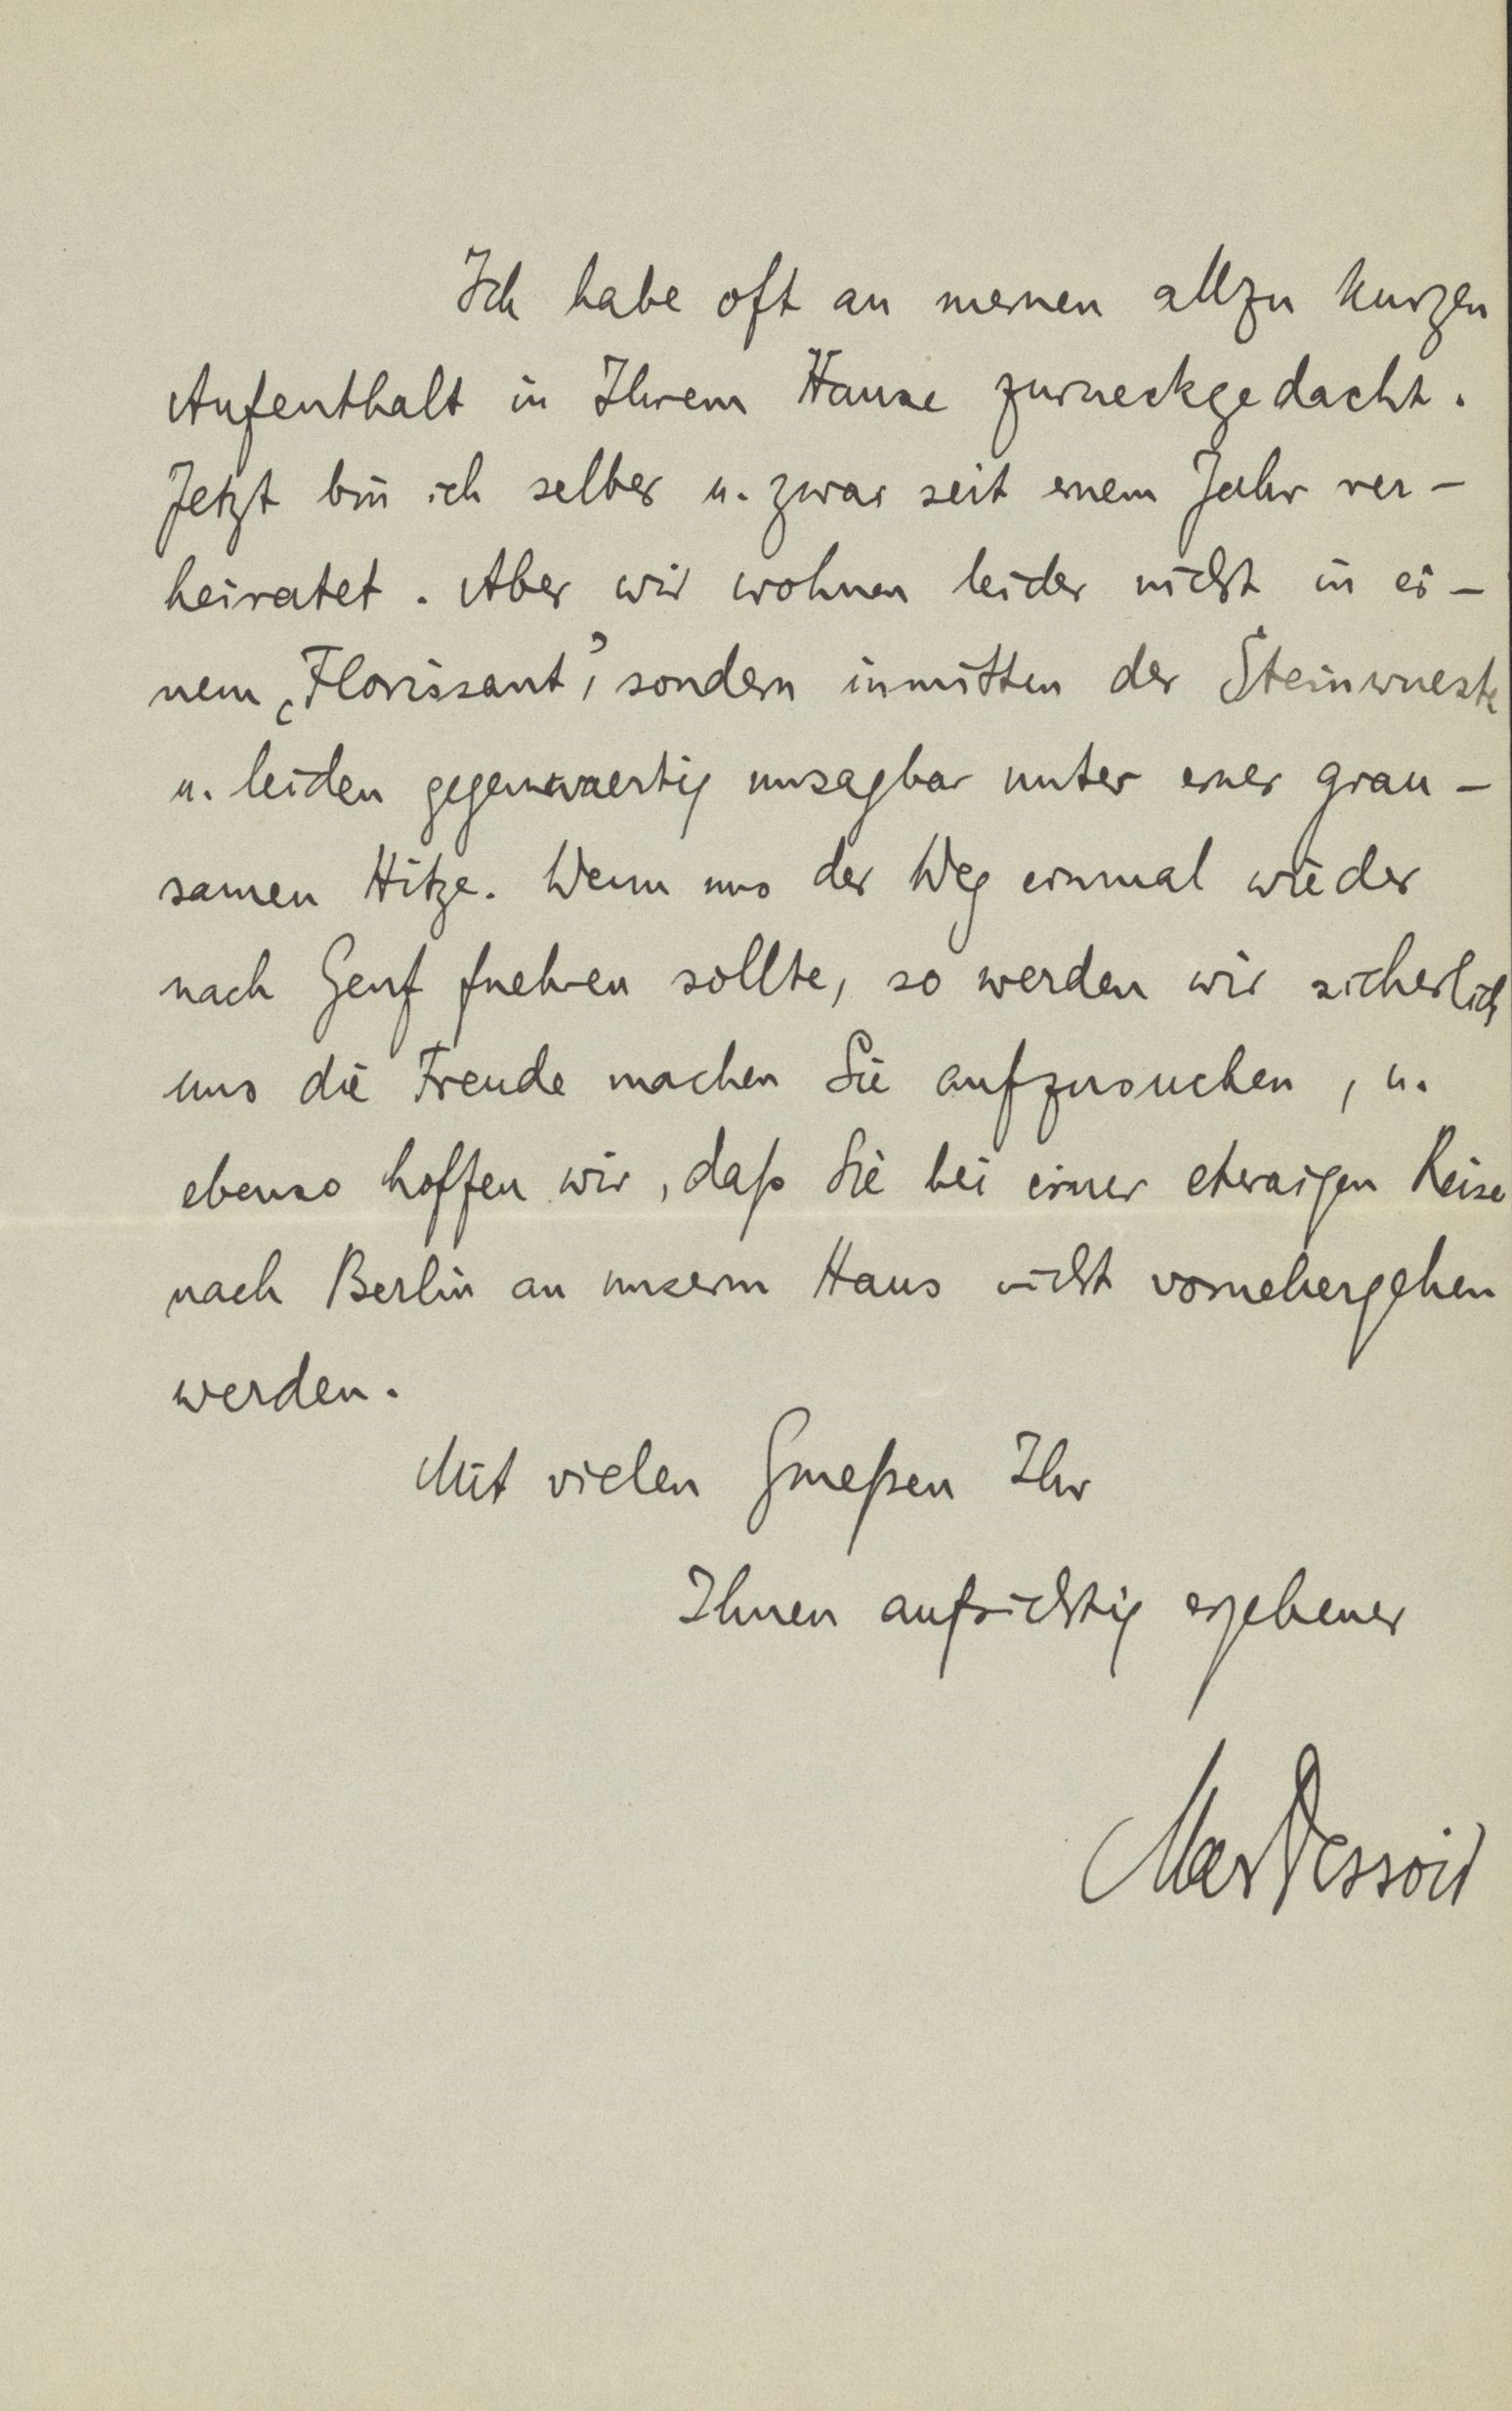 Ich habe oft an meinen allzu kurzen
Aufenthalt in Ihrem Hause zurueckgedacht.
Jetzt bin ich selber u. zwar seit einem Jahr ver-
heiratet. Aber wir wohnen leider nicht in ei-
nem „Florissant", sondern inmitten der Steinwueste
u. leiden gegenwaertig unsagbar unter einer grau-
samen Hitze. Wenn uns der Weg einmal wieder
nach Genf fuehren sollte, so werden wir sicherlich
uns die Freude machen Sie aufzusuchen, u.
ebenso hoffen wir, daß Sie bei einer etwaigen Reise
nach Berlin an unserm Haus nicht voruebergehen
werden.
Mit vielen Grueßen Ihr
Ihnen aufrichtig ergebener
Max Dessoir